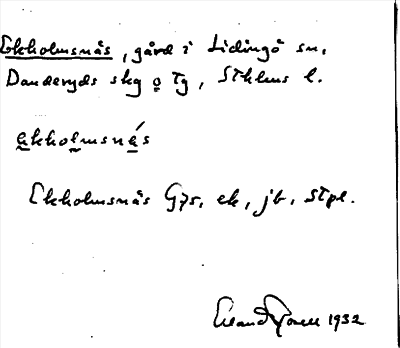 Ekholmsnäs, gård i Lidingö sn,
Danderyds skg o Tg, Sthlms l.
ekholmsnä́s
Ekholmsnäs G75, ek, jb, Stpl.
Erland 1932